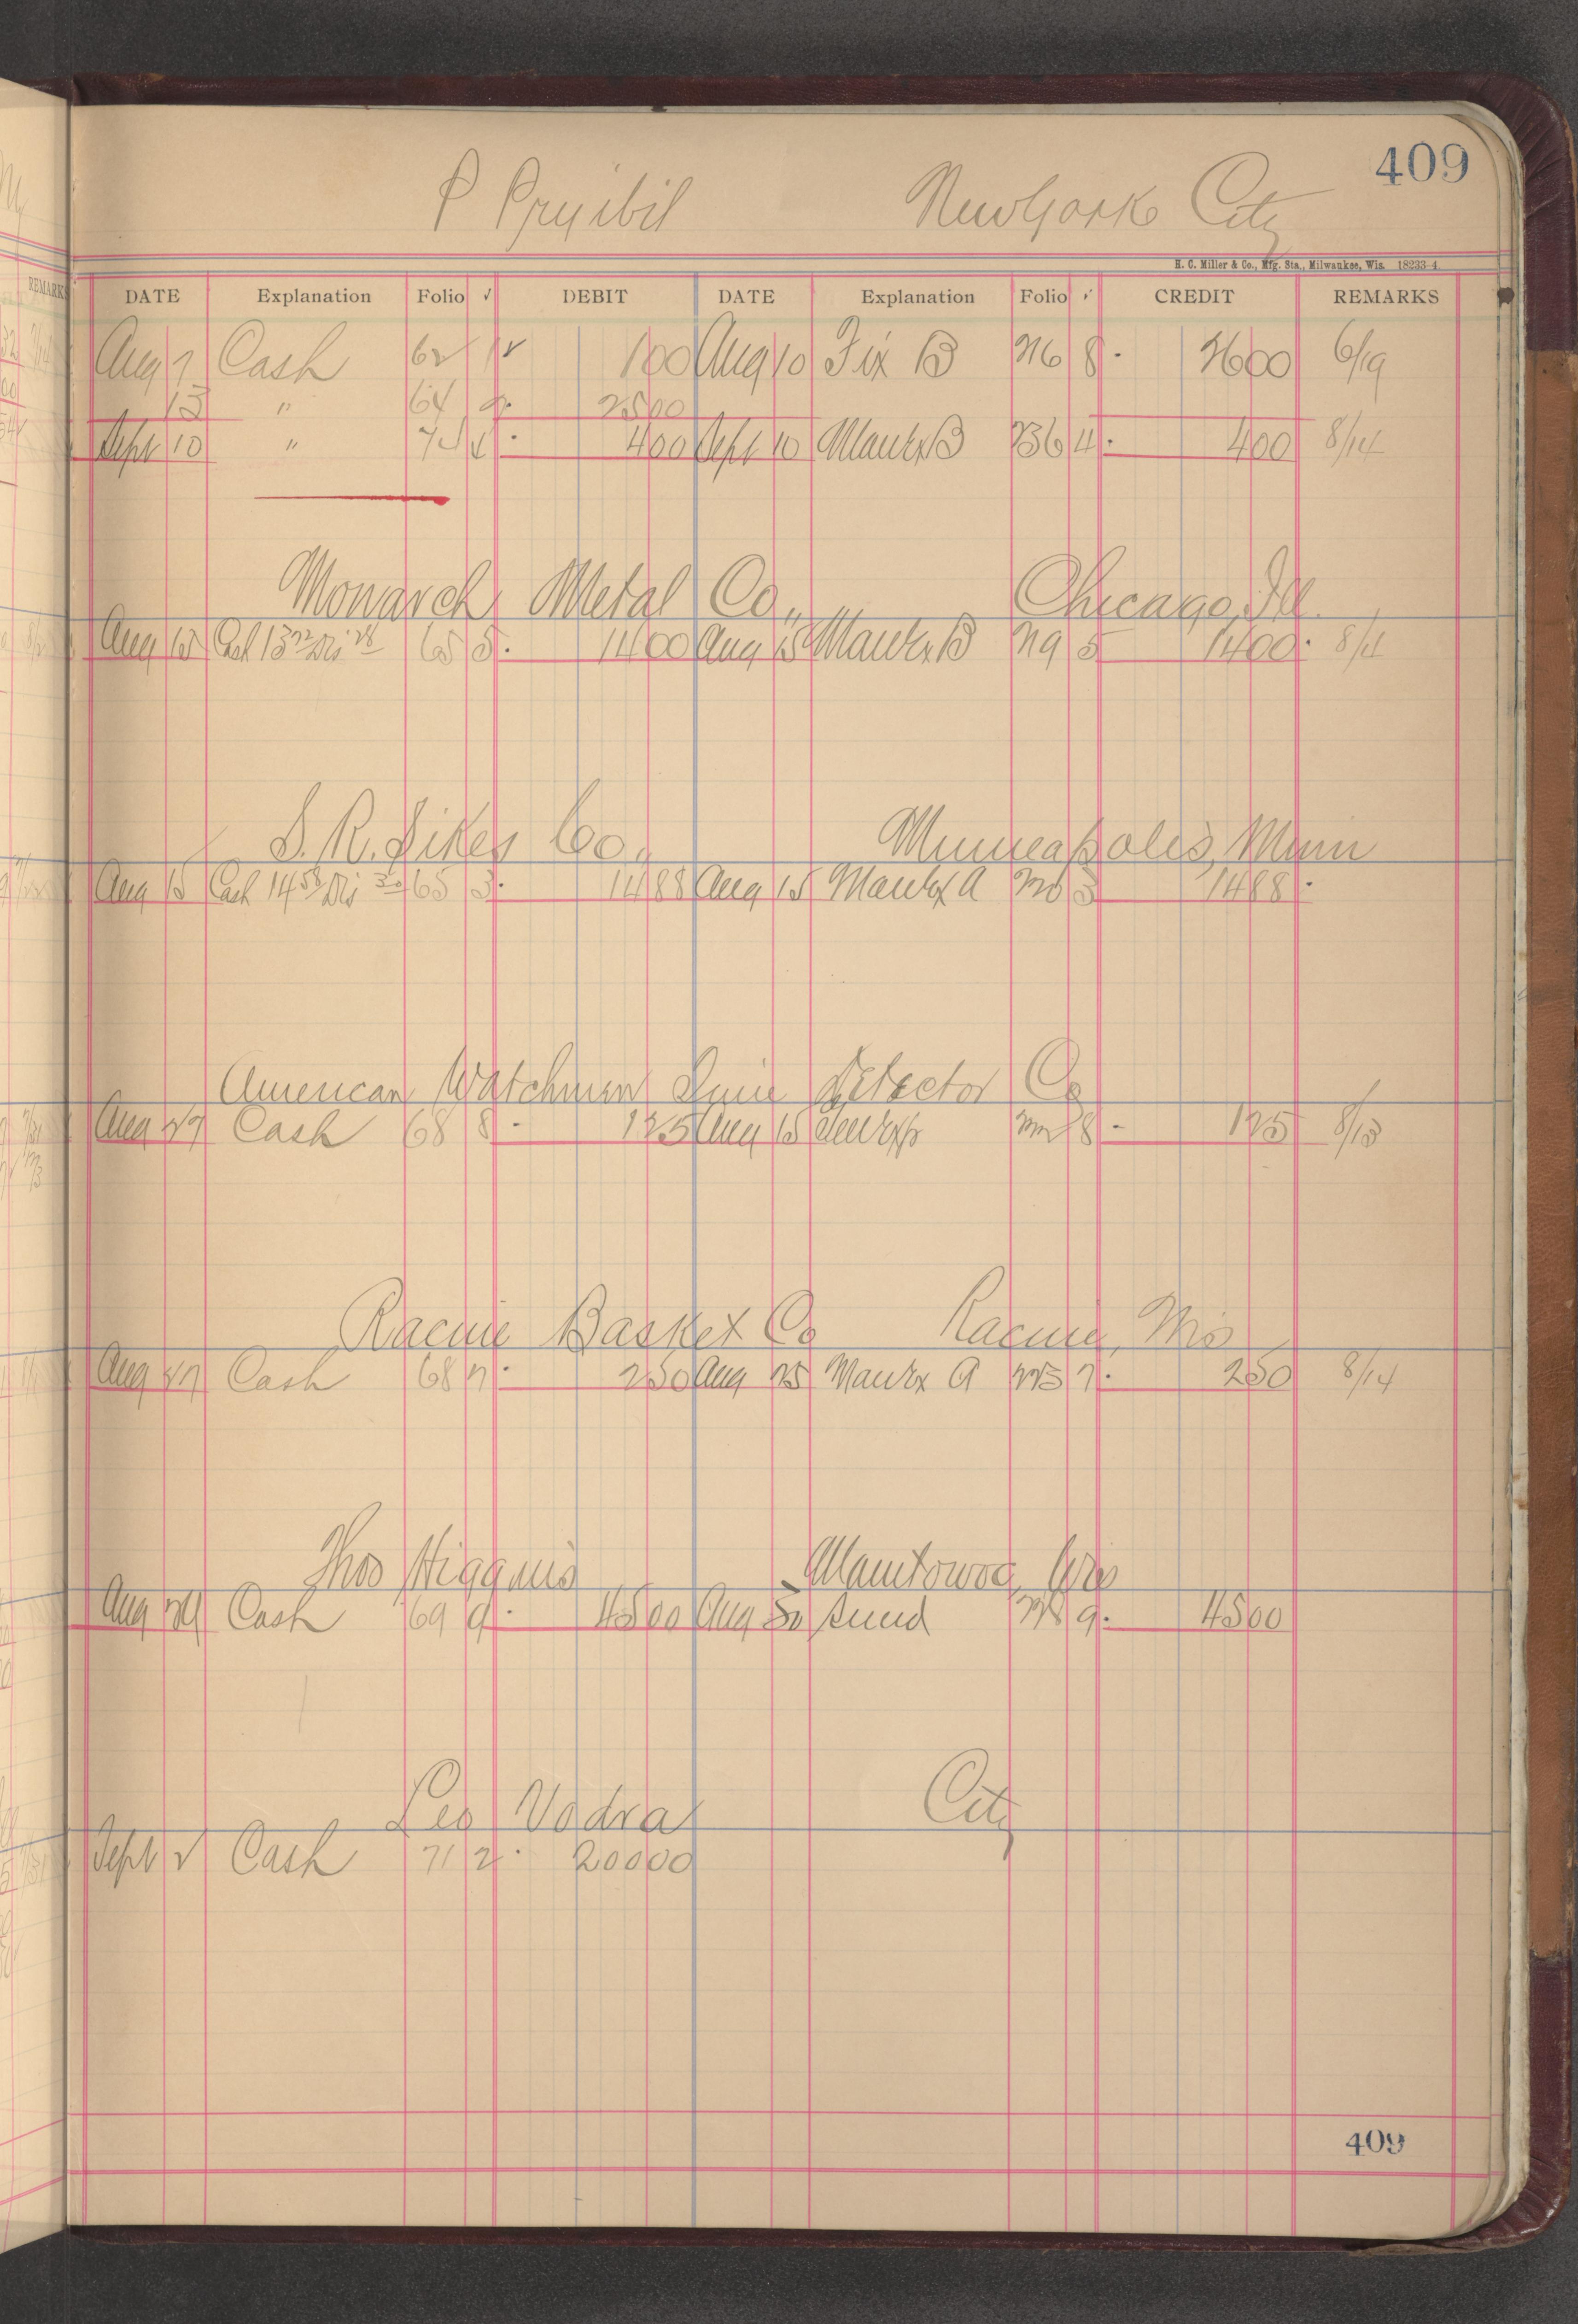 409
P Pryibil New York City
H. C. Miller & Co., Mfg. Sta., Milwaukee, Wis. 18233-4
DATE Explanation Folio ✓ DEBIT DATE Explanation Folio ✓ CREDIT REMARKS
Aug 7 Cash 62 12 100 Aug 10 Fix B 216 8 2600 6/19
13 " 64 9 2500
Sept 10 " 74 4 400 Sept 10 B 236 4 400 8/14
Monarch Metal Co., Chicago, Ill.
Aug 15 Cash 13 72 Dis 28 65 5 1400 Aug 15 B 219 5 1400 8/4
S. R. Sikes Co., Minneapolis, Minn
Aug 15 Cash 14 58 Dis 30 65 3 1488 Aug 15 A 3 1488
American Watchman Time Detector Co
Aug 27 Cash 68 8 125 Aug 15 222 8 125 8/13
Racine Basket Co Racine, Wis
Aug 27 Cash 68 7 250 Aug 25 A 225 7 250 8/14
Thos Higgins Manitowoc, Wis
Aug 29 Cash 69 9 4500 Aug 30 Sund 228 9 4500
Leo Vodra City
Sept 2 Cash 71 2 20000
409